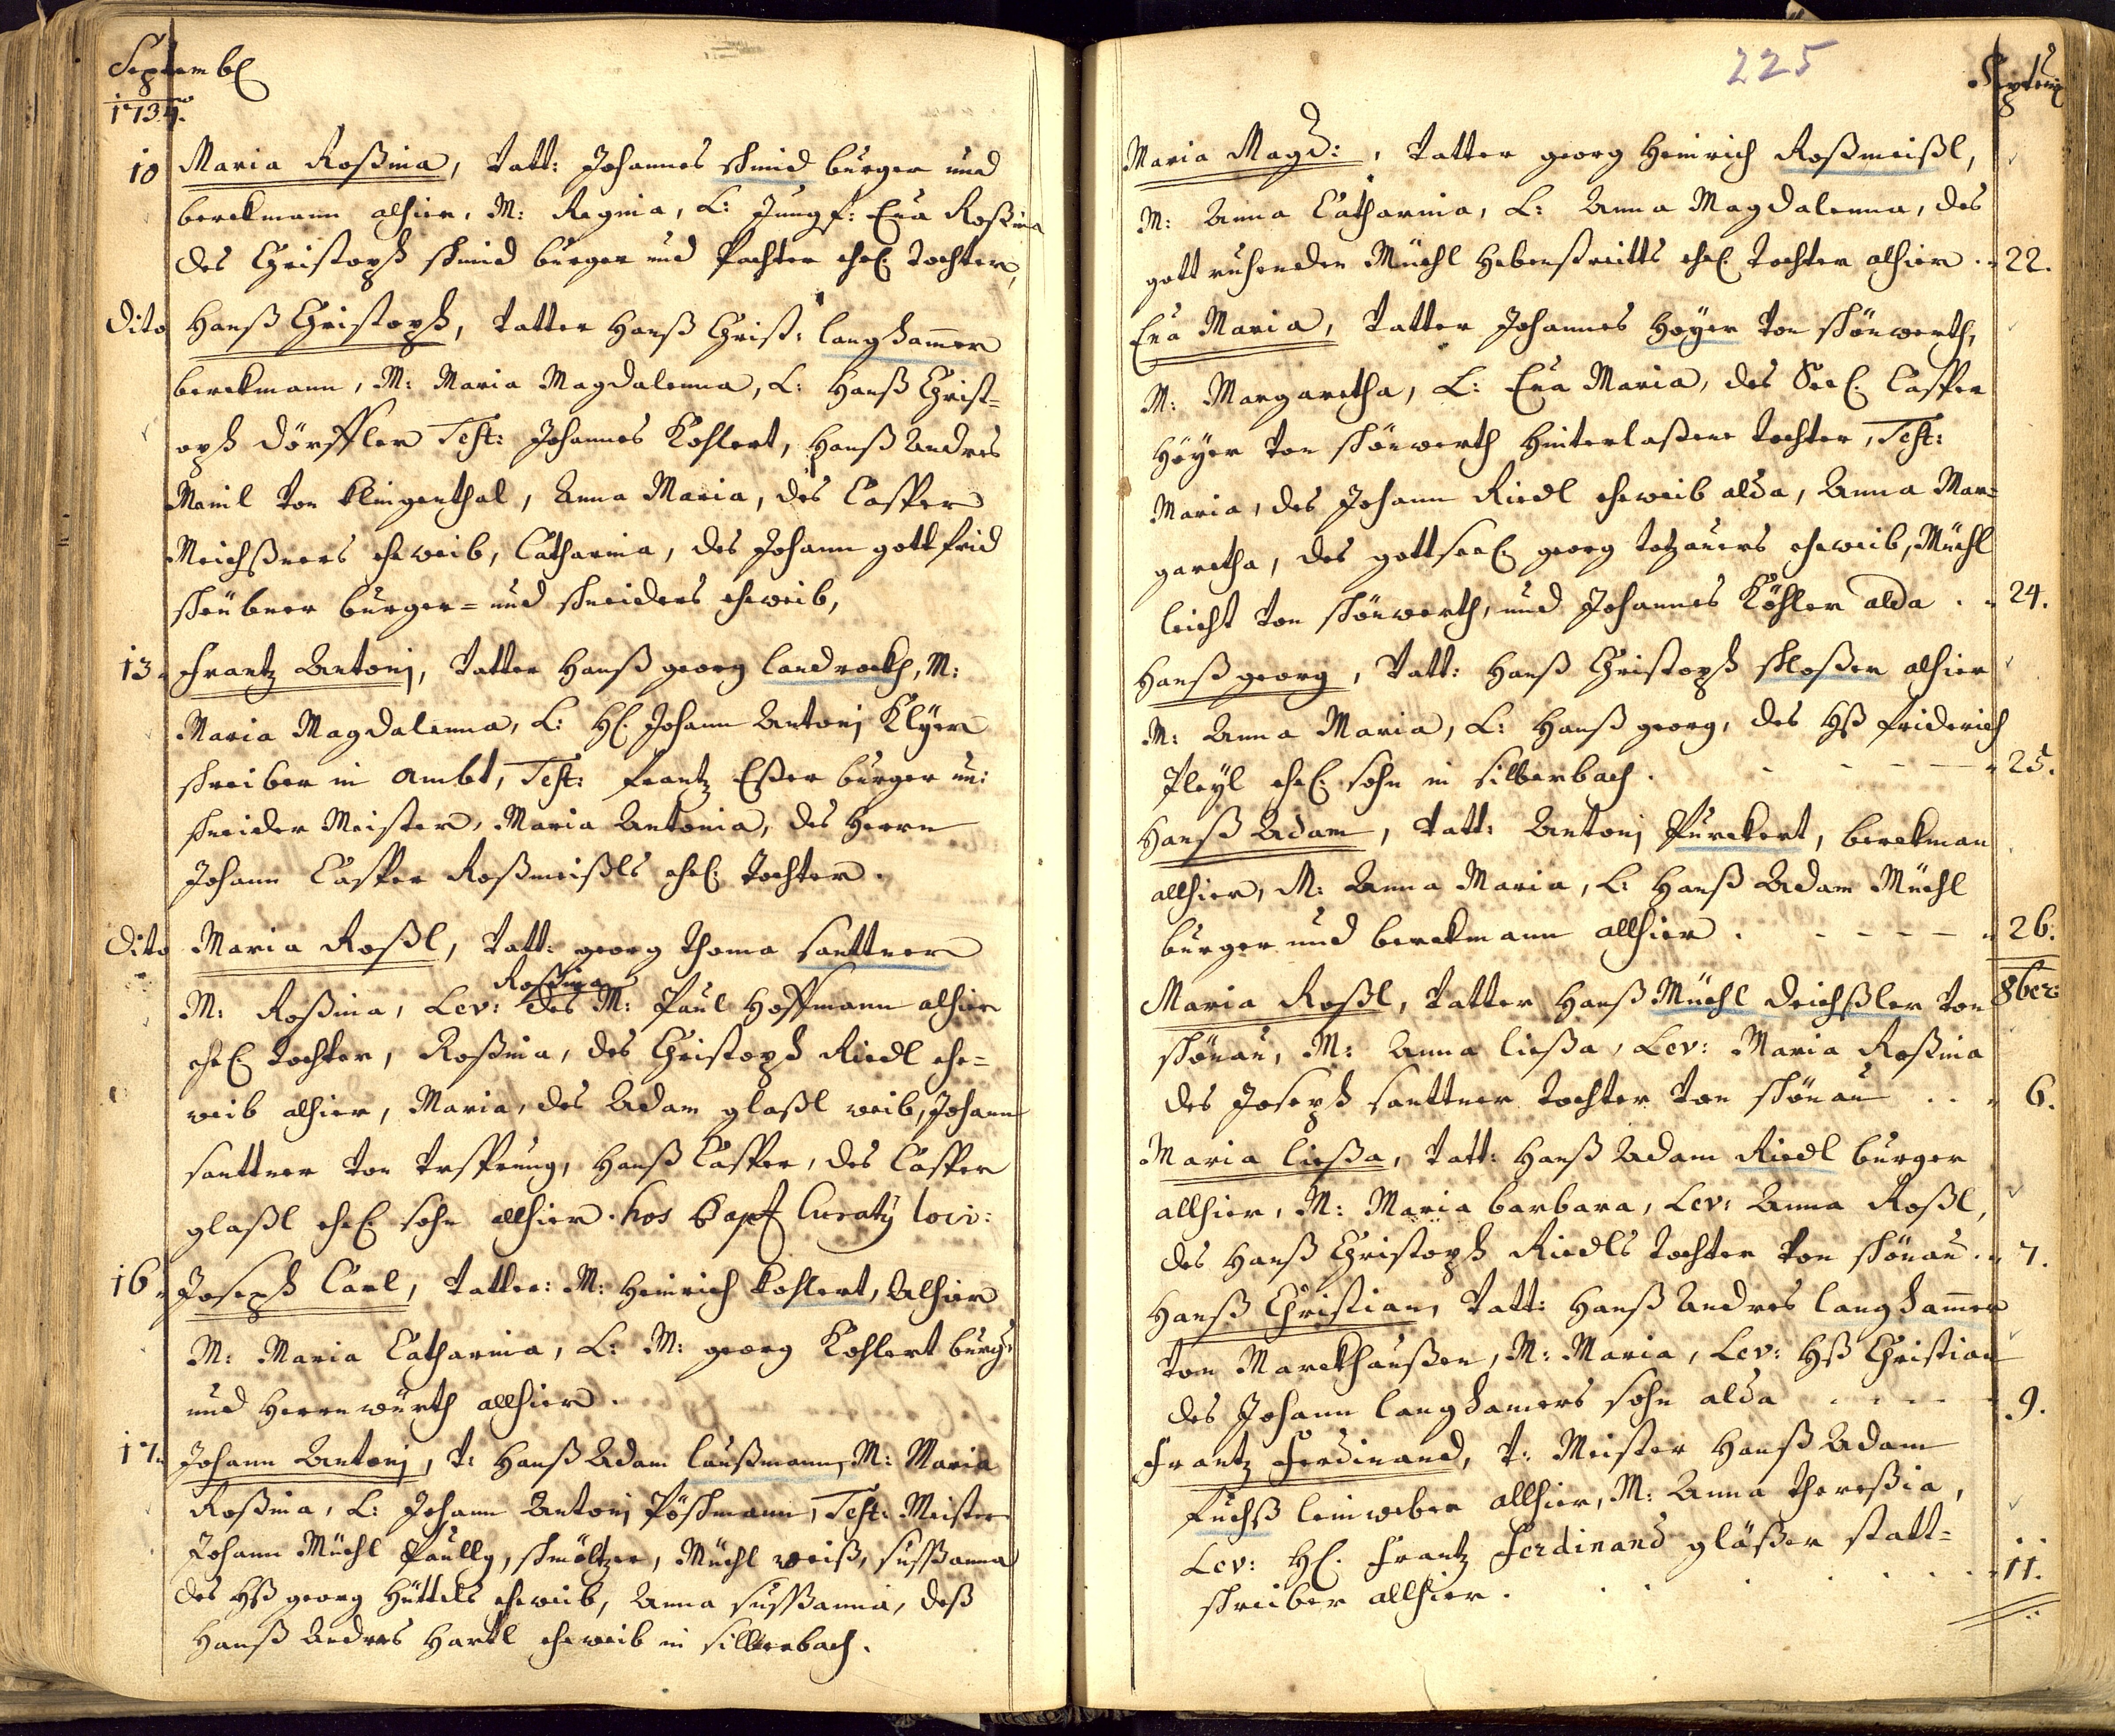 Septembr
1734.
10 Maria Roßina, Vatt: Johannes Schmid burger und
berckmann alhier, M: Regina, L: Jungf: Eva Roßina
des Christoph Schmid burger und Pachter ehel: tochter,
Dito Hanß Christoph, Vatter Hanß Christ: langhammer
berckmann, M: Maria Magdalenna, L: Hanß Christ=
oph dörffler Test: Johannes Kohlert, Hanß Andres
Meinl von Klingenthal, Anna Maria, des Casper
Meichßners eheweib, Catharina, des Johann gottfrid
burger= und schneiders eheweib,
13. Frantz Antonj, Vatter Hanß georg landrockh, M:
Maria Magdalenna, L: H: Johann Antonj Klyer
schreiber in Ambt, Test: Frantz Eßer burger un:
schneider Meister, Maria Antonia, des Herrn
Johann Casper Roßmeißls ehel: tochter.
Dito Maria Roßl, Vatt: georg thoma santtner
Roßina
M: Roßina, Lev: des M: Paul Hoffmann alhier
ehel: tochter, Roßina, des Christoph Riedl ehe=
weib alhier, Maria, des Adam glaßl weib, Johann
santtner von Ursprung, Hanß Casper, des Casper
glaßl ehel: sohn allhier. hos bapt Curaty loci:
16. Joseph Carl, Vatter: M: Heinrich Kohlert, Alhier
M: Maria Catharina, L: M: georg Kohlert burg:
und Herrnwürth allhier.
17. Johann Antonj, V: Hanß Adam laußmann, M: Maria
Roßina, L: Johann Antonj Pöschmann, Test: Meister
Johann Müchl Paully, schmöltzer, Müchl weiß, susßanna
des Hß georg Hüttels eheweib, Anna susßanna, deß
Hanß Andres Hartl eheweib in silberbach.
225
Septembr
Maria Magd:, Vatter georg Heinrich Roßmeißl,
M: Anna Catharina, L: Anna Magdalenna, des
gott ruhenden Müchl Hebenstreitts ehel: tochter alhier. 22.
Eva Maria, Vatter Johannes Höyer von schönwerth,
M: Margaretha, L: Eva Maria, des Seel: Casper
Höyer von schönwerth hinterlaßene tochter, Test:
Maria, des Johann Riedl eheweib alda, Anna Mar=
garetha, des gottseel: georg totzauers eheweib, Müchl
leicht von schönwerth, und Johannes Köhler alda. 24.
Hanß georg, Vatt: Hanß Christoph schloßer alhier
M: Anna Maria, L: Hanß georg, des Hß friderich
Pleyl ehel: sohn in silberbach. 25.
Hanß Adam, Vatt: Antonj Purckert, berckman
allhier, M: Anna Maria, L: Hanß Adam Müchl
burger und berckmann allhier. 26.
8ber:
Maria Roßl, Vatter Hanß Müchl deichßler von
schönau, M: Anna ließa, Lev: Maria Roßina
des Joseph santtner tochter von schönau .. 6.
Maria ließa, Vatt: Hanß Adam Riedl burger
allhier, M: Maria barbara, Lev: Anna Roßl,
des Hanß Christoph Riedls tochter von schönau. 7.
Hanß Christian, Vatt: Hanß Andres langhammer
von Marckhaußen, M: Maria, Lev: Hß Christian
des Johann langhamers sohn alda 9.
Frantz Ferdinand, V: Meister Hanß Adam
fuchß leinweber allhier, M: Anna thereßia,
Lev: H: Frantz Ferdinand gläßer statt=
schreiber allhier. 11.